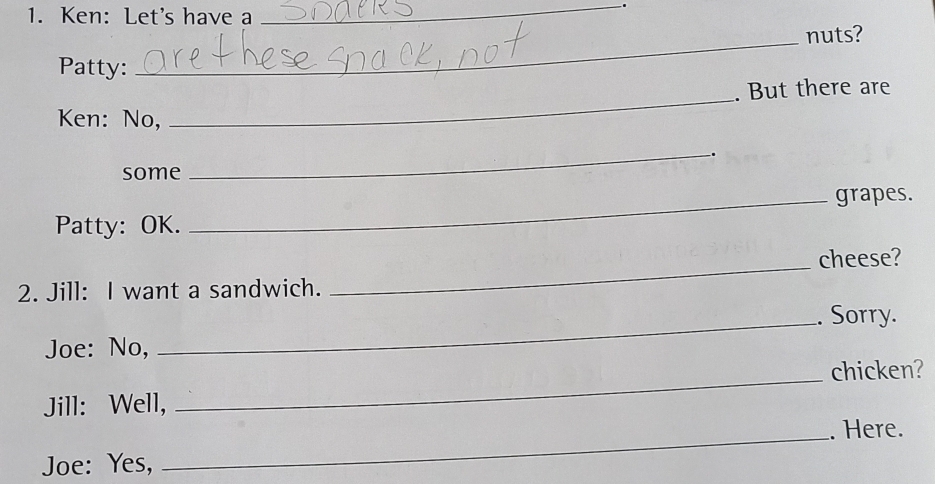 1. Ken: Let's have a snacks.
Patty: are these snack, not nuts?
Ken: No, . But there are
some .
Patty: OK. grapes.
2. Jill: I want a sandwich. cheese?
Joe: No, . Sorry.
Jill: Well, chicken?
Joe: Yes, . Here.